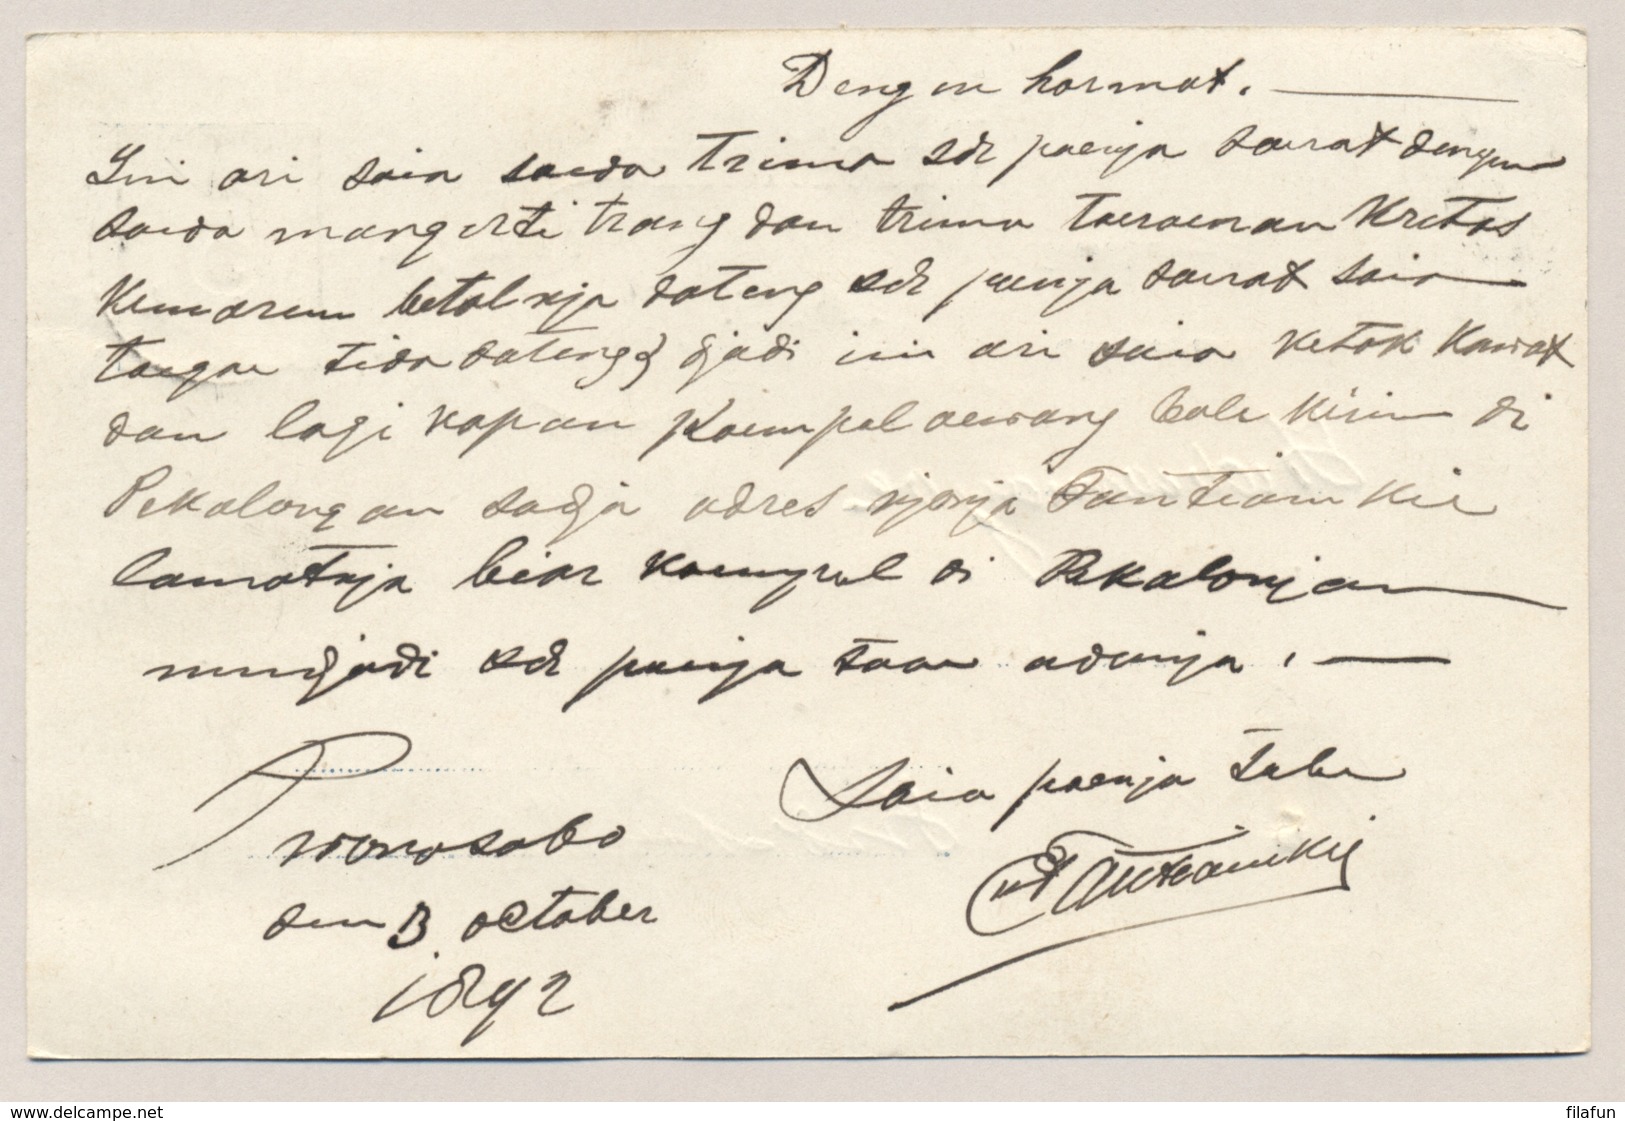 Dengen hormat.
Ini ari saia soeda trima sdr poenja soerat dengen
soeda mangerti trang dan trima toeroenan Kretas
Kemaren betol nja dateng sdr poenja soerat saia
toegoe tida dateng2 djadi ini ari saia Ketok Kawat
dan lagi kapan Koempol oewang bole Kirim di
Pekalongan sadja adres njonja Tan Tiam Kie
lamatnja biar koempol di Pekalongan
mendjadi sdr poenja taoe adanja.
Saia poenja tabe
Wonosobo
den 3 October
1892
www.delcampe.net
filafun